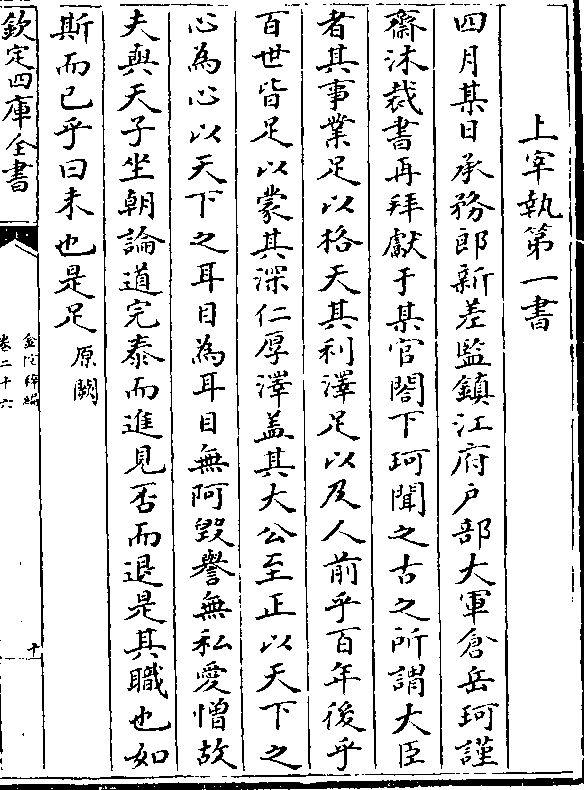 上宰執第一書
四月某日承務郎新差監鎮江府戶部大軍倉岳珂謹
齋沐裁書再拜獻于某官閤下珂聞之古之所謂大臣
者其事業足以格天其利澤足以及人前乎百年後乎
百世皆足以蒙其深仁厚澤盖其大公至正以天下之
心為心以天下之耳目為耳目無阿毀譽無私愛憎故
夫與天子坐朝論道完泰而進見否而退是其職也如
斯而已乎曰未也是足原闕
欽定四庫全書
金佗稡編
卷二十六
十